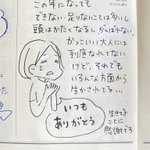 この年になっても
できない、足りないことは多いし
頭はかたくなるし からだゆるい、
かっこいい大人には
到底なれてない
けど、それでも
いろんな方面から
生かされてる…
いつも
ありがとう
生きてる
ことに
感謝だす